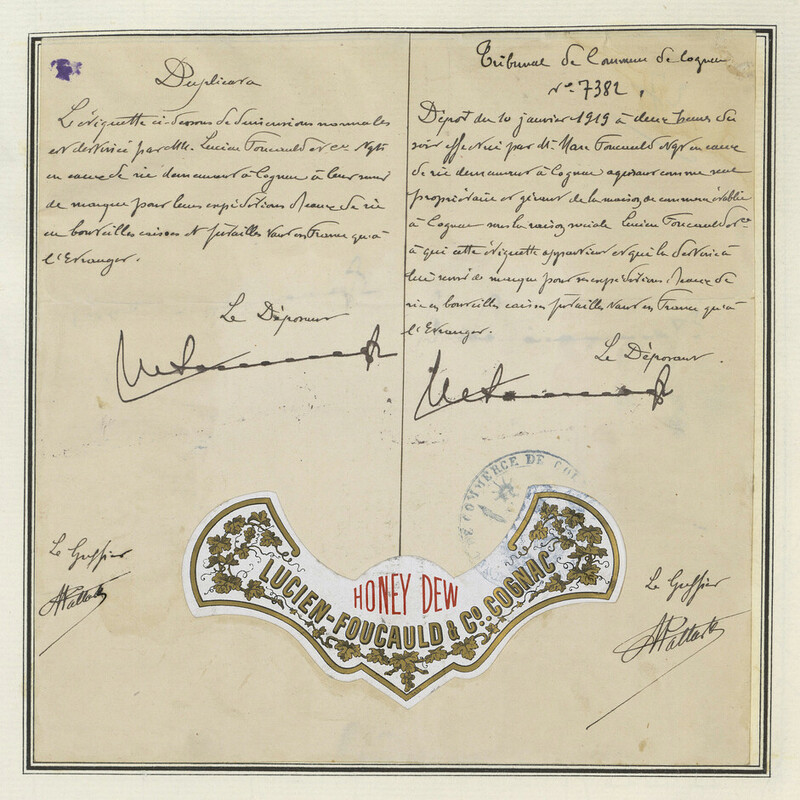 Duplicata
L'étiquette ci-dessous de dimensions normales
est destinée par MM. Lucien Foucauld et Cie Ngts
en eaux de vie demeurant à Cognac à leur servir
de marque pour leurs expéditions d'eaux de vie
en bouteilles caisses et futailles tant en France qu'à
l'Etranger.
Le Déposant
Le Greffier
Tribunal de Commerce de Cognac
No. 7382.
Dépot du 10 janvier 1919 à deux heures du
soir effectué par Mr. Marc Foucauld Ngt en eaux
de vie demeurant à Cognac agissant comme seul
propriétaire et gérant de la maison de commerce établie
à Cognac sous la raison sociale Lucien Foucauld et Cie
à qui cette étiquette appartient et qui la destine à
lui servir de marque pour ses expéditions d'eaux de
vie en bouteilles caisses futailles tant en France qu'à
l'Etranger.
Le Déposant.
COMMERCE DE
HONEY DEW
LUCIEN-FOUCAULD & Co. COGNAC
Le Greffier